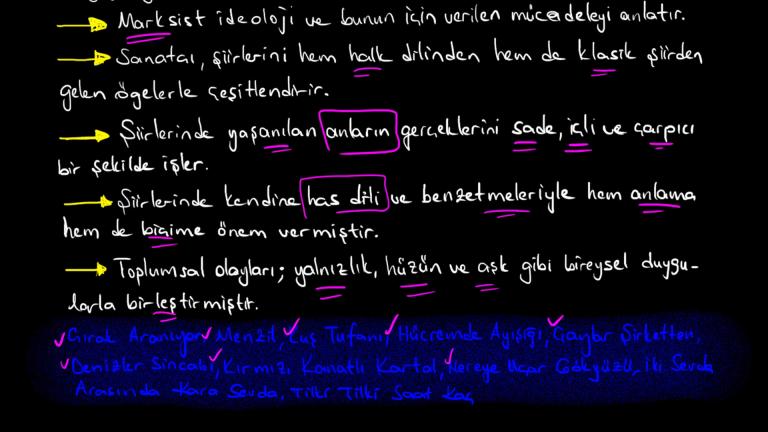 → Marksist ideoloji ve bunun için verilen mücadeleyi anlatır.
→ Sanatçı, şiirlerini hem halk dilinden hem de klasik şiirden
gelen ögelerle çeşitlendirir.
→ Şiirlerinde yaşanılan anların gerçeklerini sade, içli ve çarpıcı
bir şekilde işler.
→ Şiirlerinde kendine has dili ve benzetmeleriyle hem anlama
hem de biçime önem vermiştir.
→ Toplumsal olayları; yalnızlık, hüzün ve aşk gibi bireysel duygu-
larla birleştirmiştir.
Çırak Aranıyor, Menzil, Kuş Tufanı, Hücremde Ayışığı, Çaylar Şirketten,
Denizler Sincabı, Kırmızı Kanatlı Kartal, Nereye Uçar Gökyüzü, İki Sevda
Arasında Kara Sevda, Tilki Tilki Saat Kaç